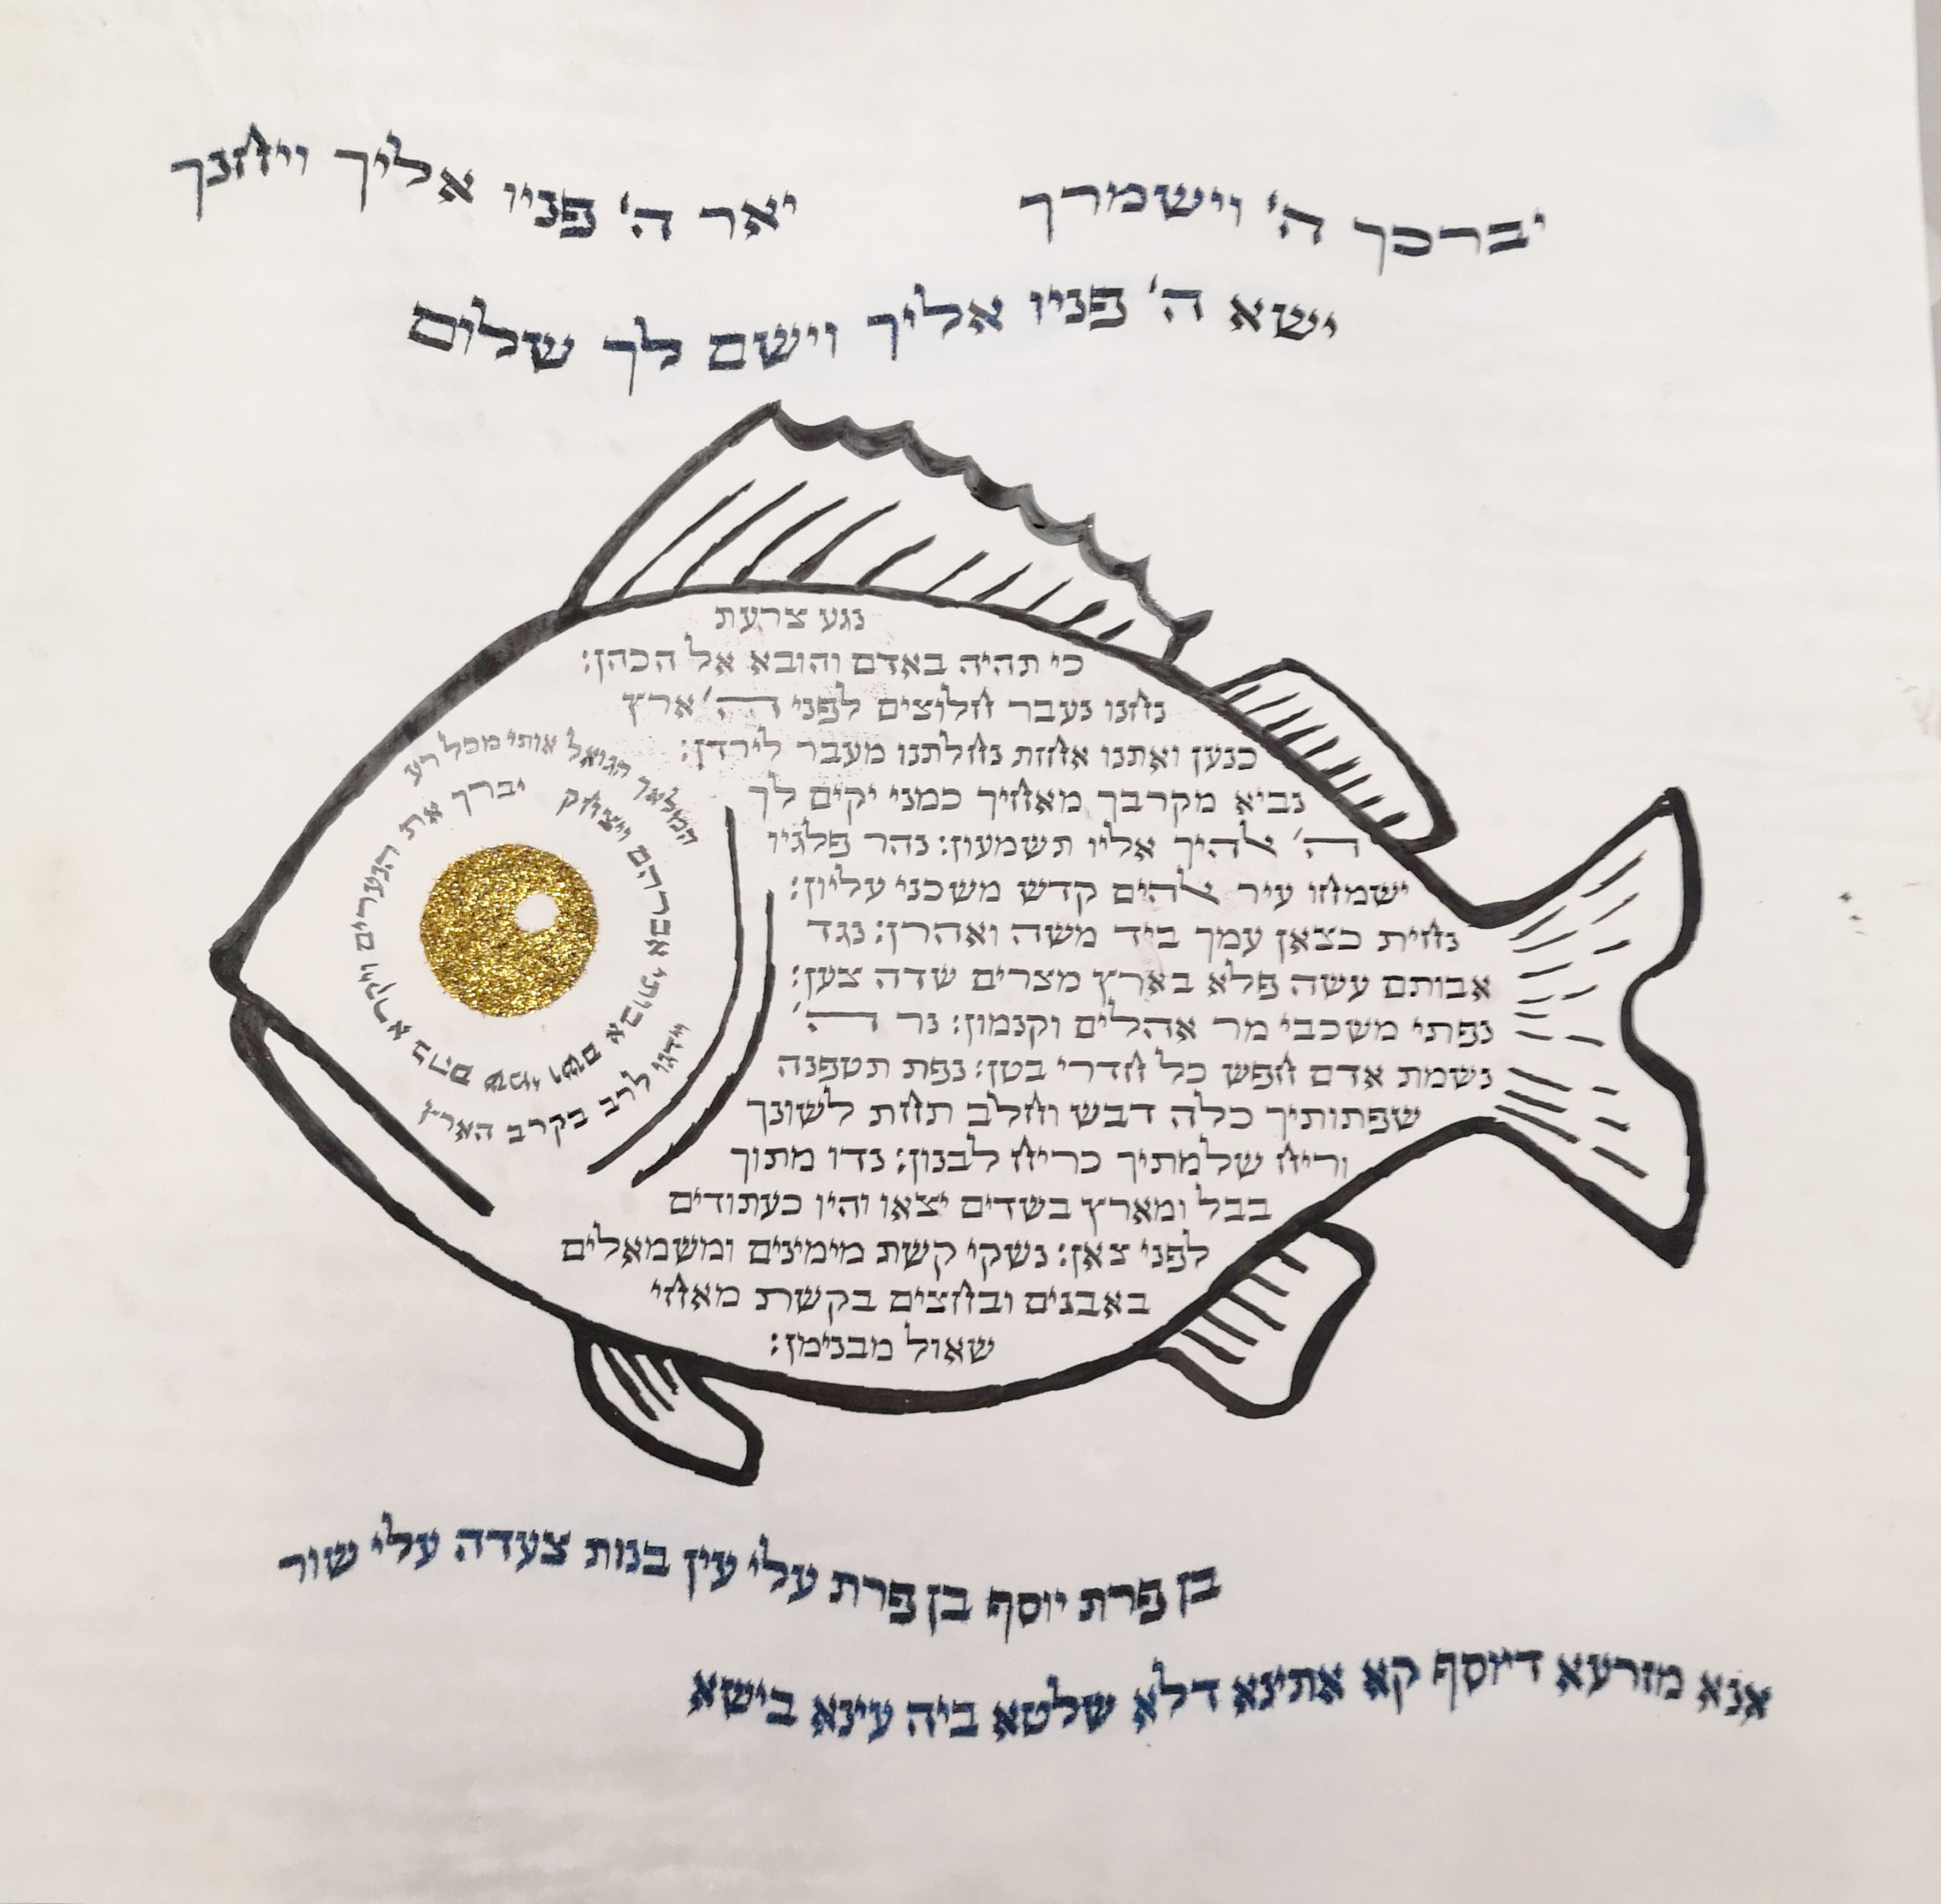 יברכך ה' וישמרך
יאר ה' פניו אליך ויחנך
ישא ה' פניו אליך וישם לך שלום
נגע צרעת
כי תהיה באדם והובא אל הכהן:
נחנו נעבר חלוצים לפני ה' ארץ
כנען ואתנו אחזת נחלתנו מעבר לירדן:
נביא מקרבך מאחיך כמני יקים לך
ה' אלהיך אליו תשמעון: נהר פלגיו
ישמחו עיר אלהים קדש משכני עליון:
נחית כצאן עמך ביד משה ואהרן: נגד
אבותם עשה פלא בארץ מצרים שדה צען:
נפתי משכבי מר אהלים וקנמון: נר ה'
נשמת אדם חפש כל חדרי בטן: נפת תטפנה
שפתותיך כלה דבש וחלב תחת לשונך
וריח שלמתיך כריח לבנון: נדו מתוך
בבל ומארץ בשדים יצאו והיו כעתודים
לפני צאן: נשקי קשת מימינים ומשמאלים
באבנים ובחצים בקשת מאחי
שאול מבנימן:
המלאך הגואל אותי מכל רע
יברך את הנערים ויקרא בהם שמי ושם אבותי אברהם ויצחק
וידגו לרב בקרב הארץ
בן פרת יוסף בן פרת עלי עין בנות צעדה עלי שור
אנא מזרעא דיוסף קא אתינא דלא שלטא ביה עינא בישא